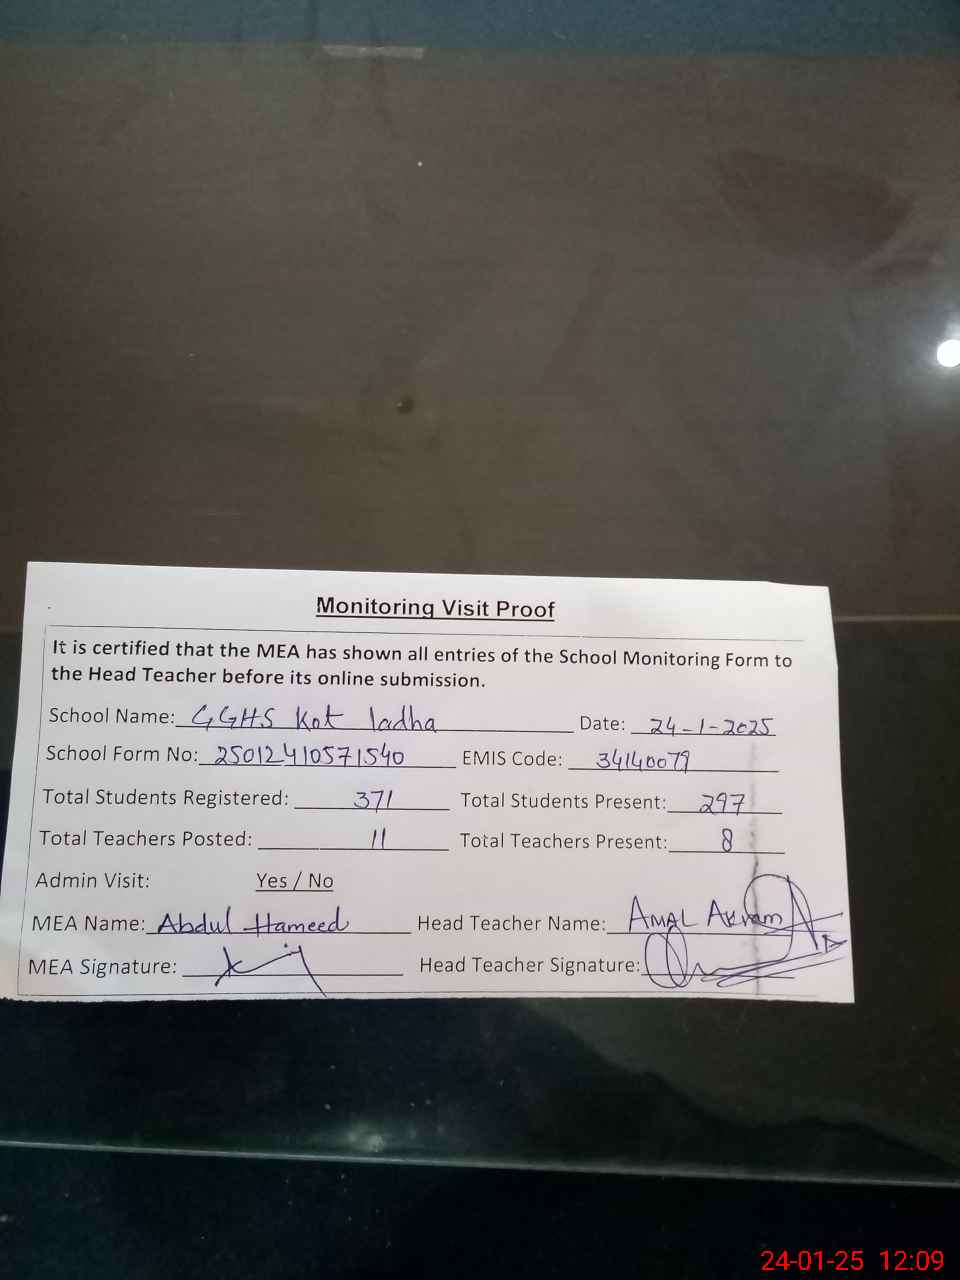 Monitoring Visit Proof
It is certified that the MEA has shown all entries of the School Monitoring Form to
the Head Teacher before its online submission.
School Name: GGHS Kot ladha Date: 24-1-2025
School Form No: 25012410571540 EMIS Code: 34140079
Total Students Registered: 371 Total Students Present: 297
Total Teachers Posted: 11 Total Teachers Present: 8
Admin Visit: Yes / No
MEA Name: Abdul Hameed Head Teacher Name: AMAL Akram
MEA Signature: Head Teacher Signature:
24-01-25 12:09